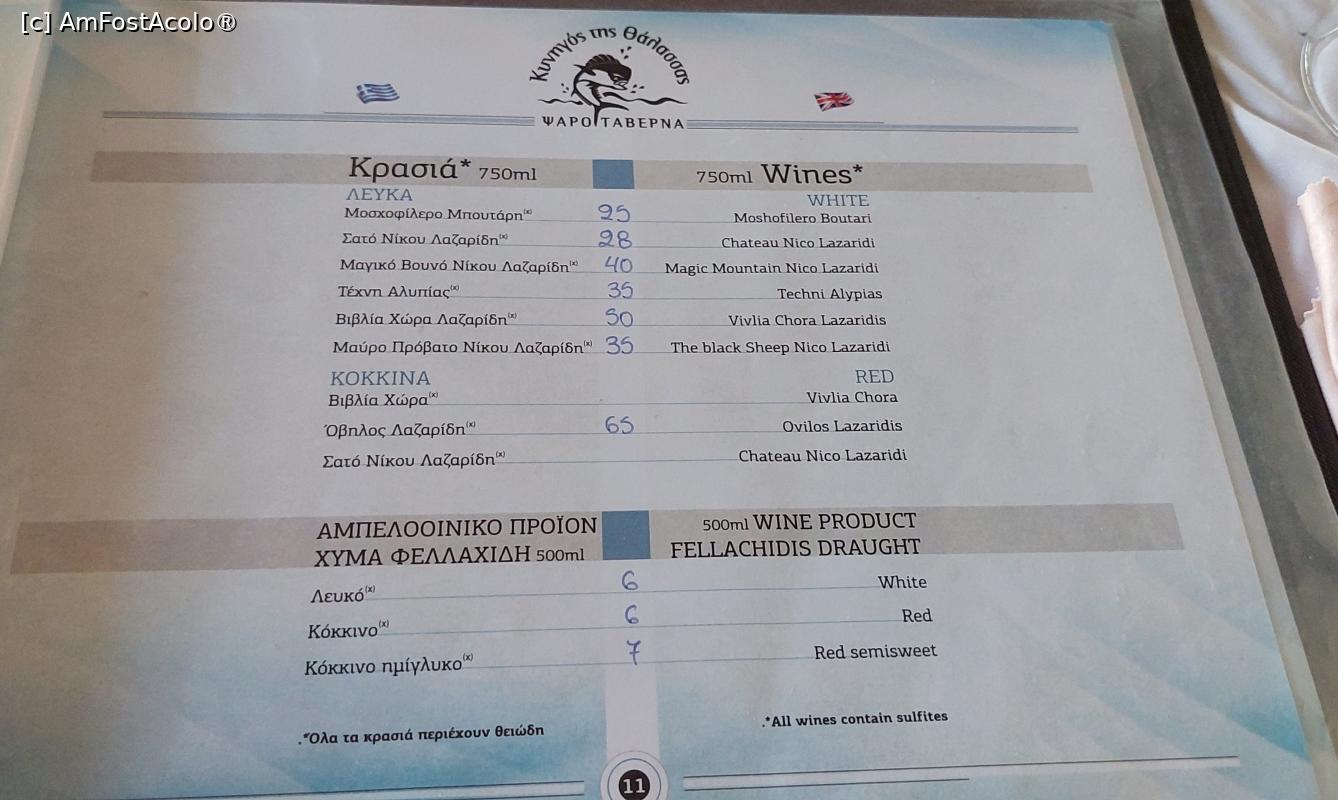 [c] AmFostAcolo®
Κυνηγός της Θάλασσας
ΨΑΡΟΤΑΒΕΡΝΑ
Κρασιά* 750ml 750ml Wines*
ΛΕΥΚΑ WHITE
Μοσχοφίλερο Μπουτάρη(x) 25 Moshofilero Boutari
Σατό Νίκου Λαζαρίδη(x) 28 Chateau Nico Lazaridi
Μαγικό Βουνό Νίκου Λαζαρίδη(x) 40 Magic Mountain Nico Lazaridi
Τέχνη Αλυπίας(x) 35 Techni Alypias
Βιβλία Χώρα Λαζαρίδη(x) 50 Vivlia Chora Lazaridis
Μαύρο Πρόβατο Νίκου Λαζαρίδη(x) 35 The black Sheep Nico Lazaridi
ΚΟΚΚΙΝΑ RED
Βιβλία Χώρα(x) Vivlia Chora
Όβηλος Λαζαρίδη(x) 65 Ovilos Lazaridis
Σατό Νίκου Λαζαρίδη(x) Chateau Nico Lazaridi
ΑΜΠΕΛΟΟΙΝΙΚΟ ΠΡΟΪΟΝ 500ml WINE PRODUCT
ΧΥΜΑ ΦΕΛΛΑΧΙΔΗ 500ml FELLACHIDIS DRAUGHT
Λευκό(x) 6 White
Κόκκινο(x) 6 Red
Κόκκινο ημίγλυκο(x) 7 Red semisweet
.*Όλα τα κρασιά περιέχουν θειώδη .*All wines contain sulfites
11